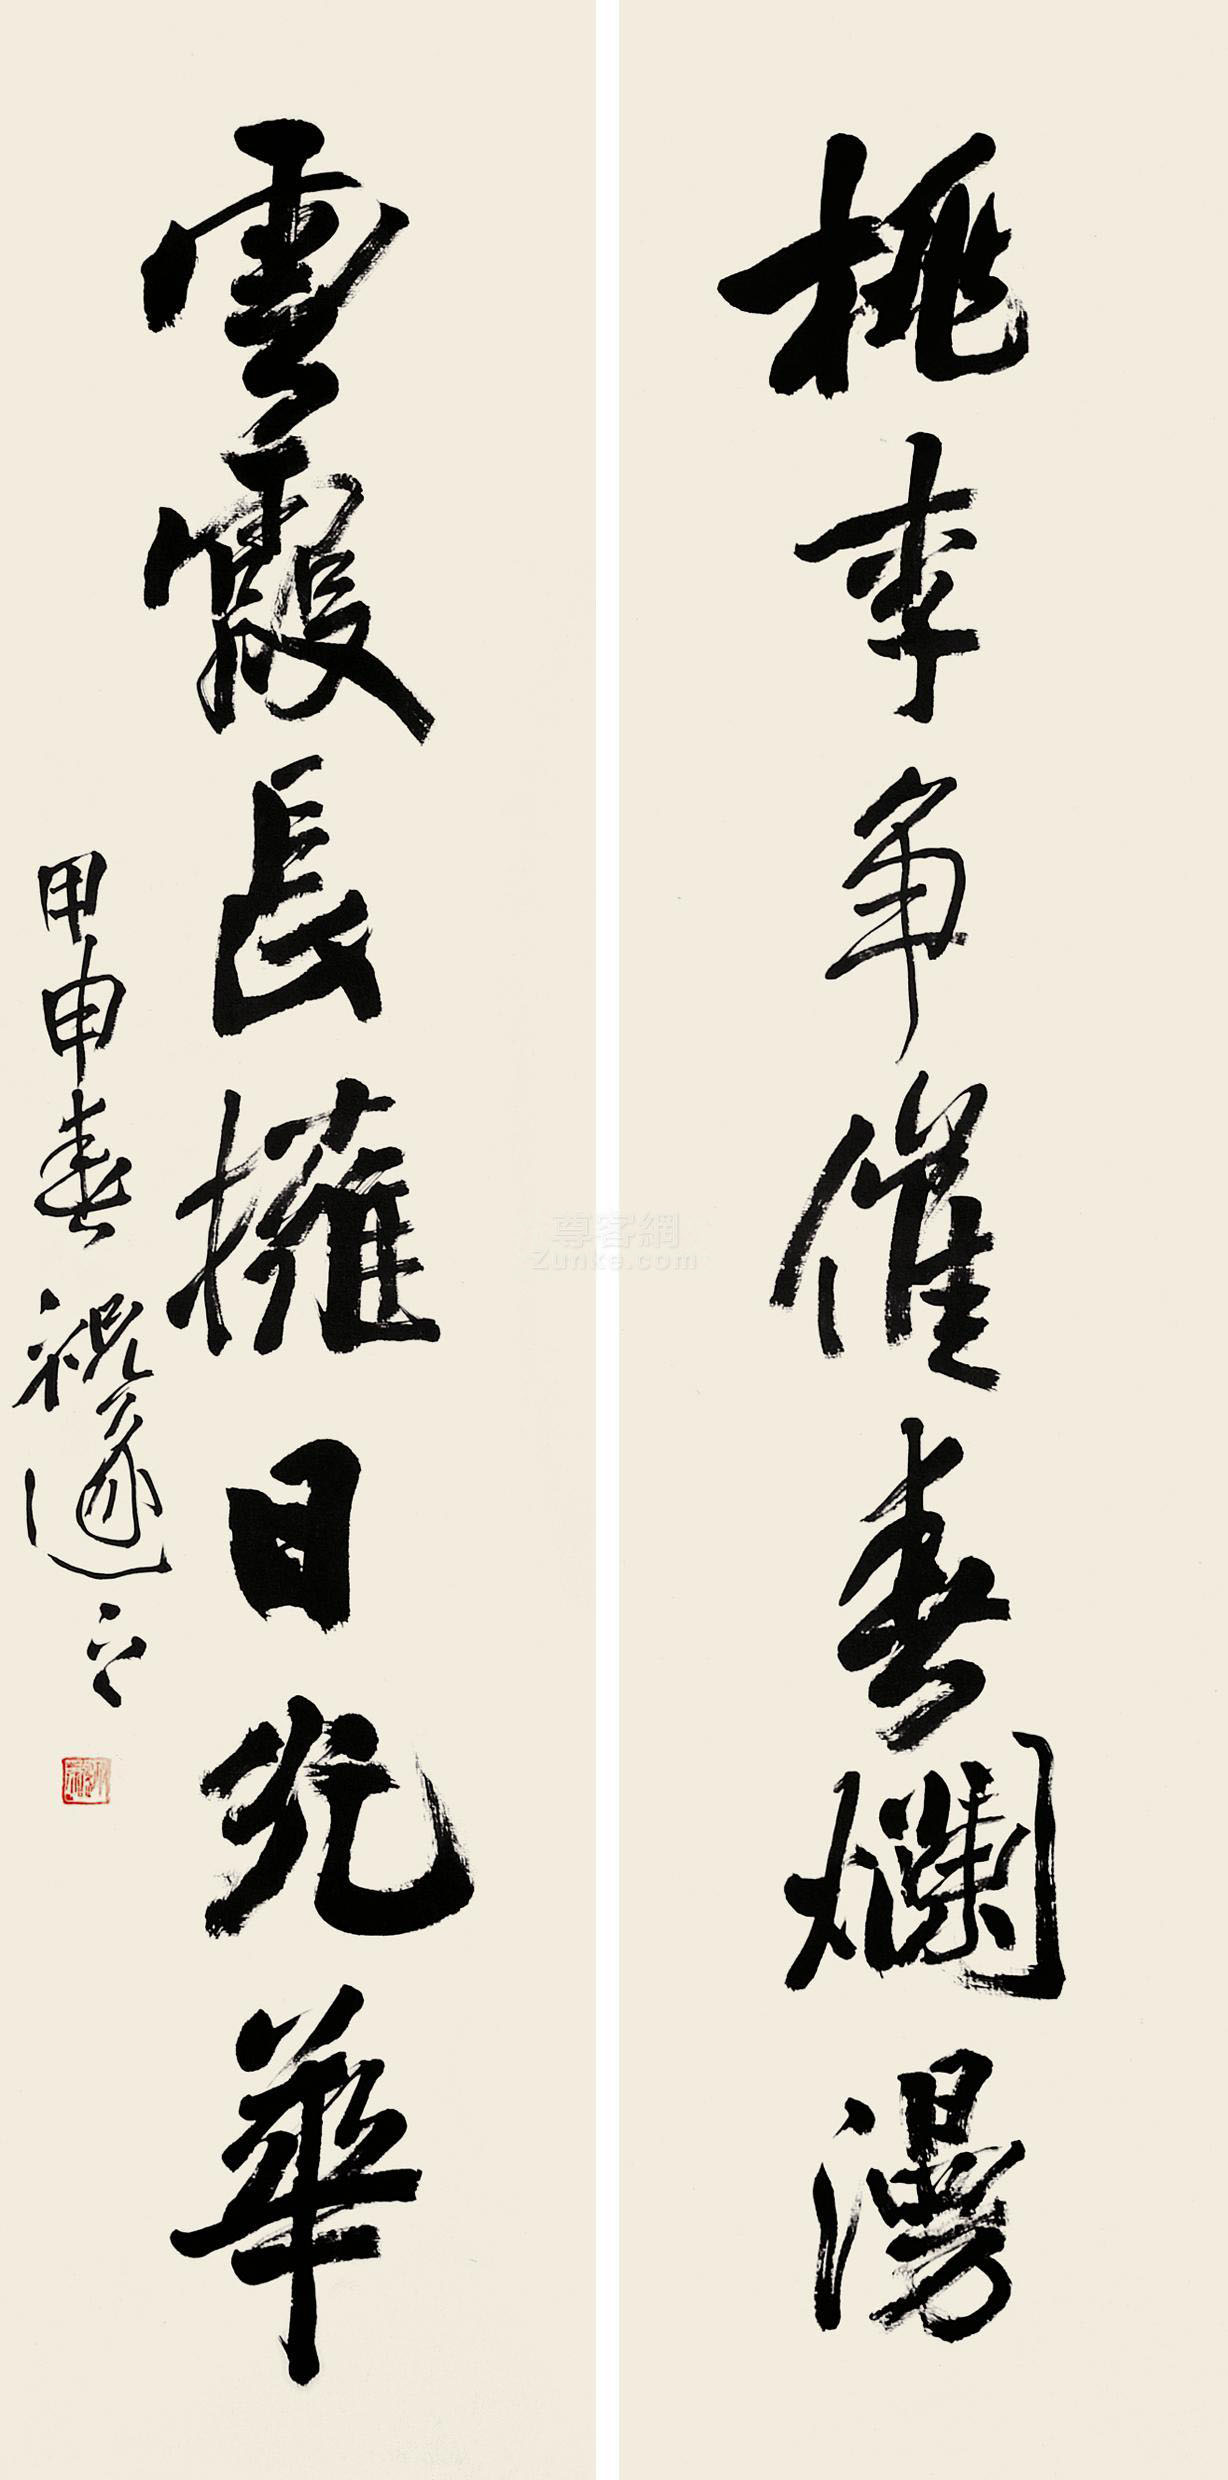 桃李争催春爛漫
雲霞長擁日光華
甲申春祝遂之
尊客網
Zunke.com